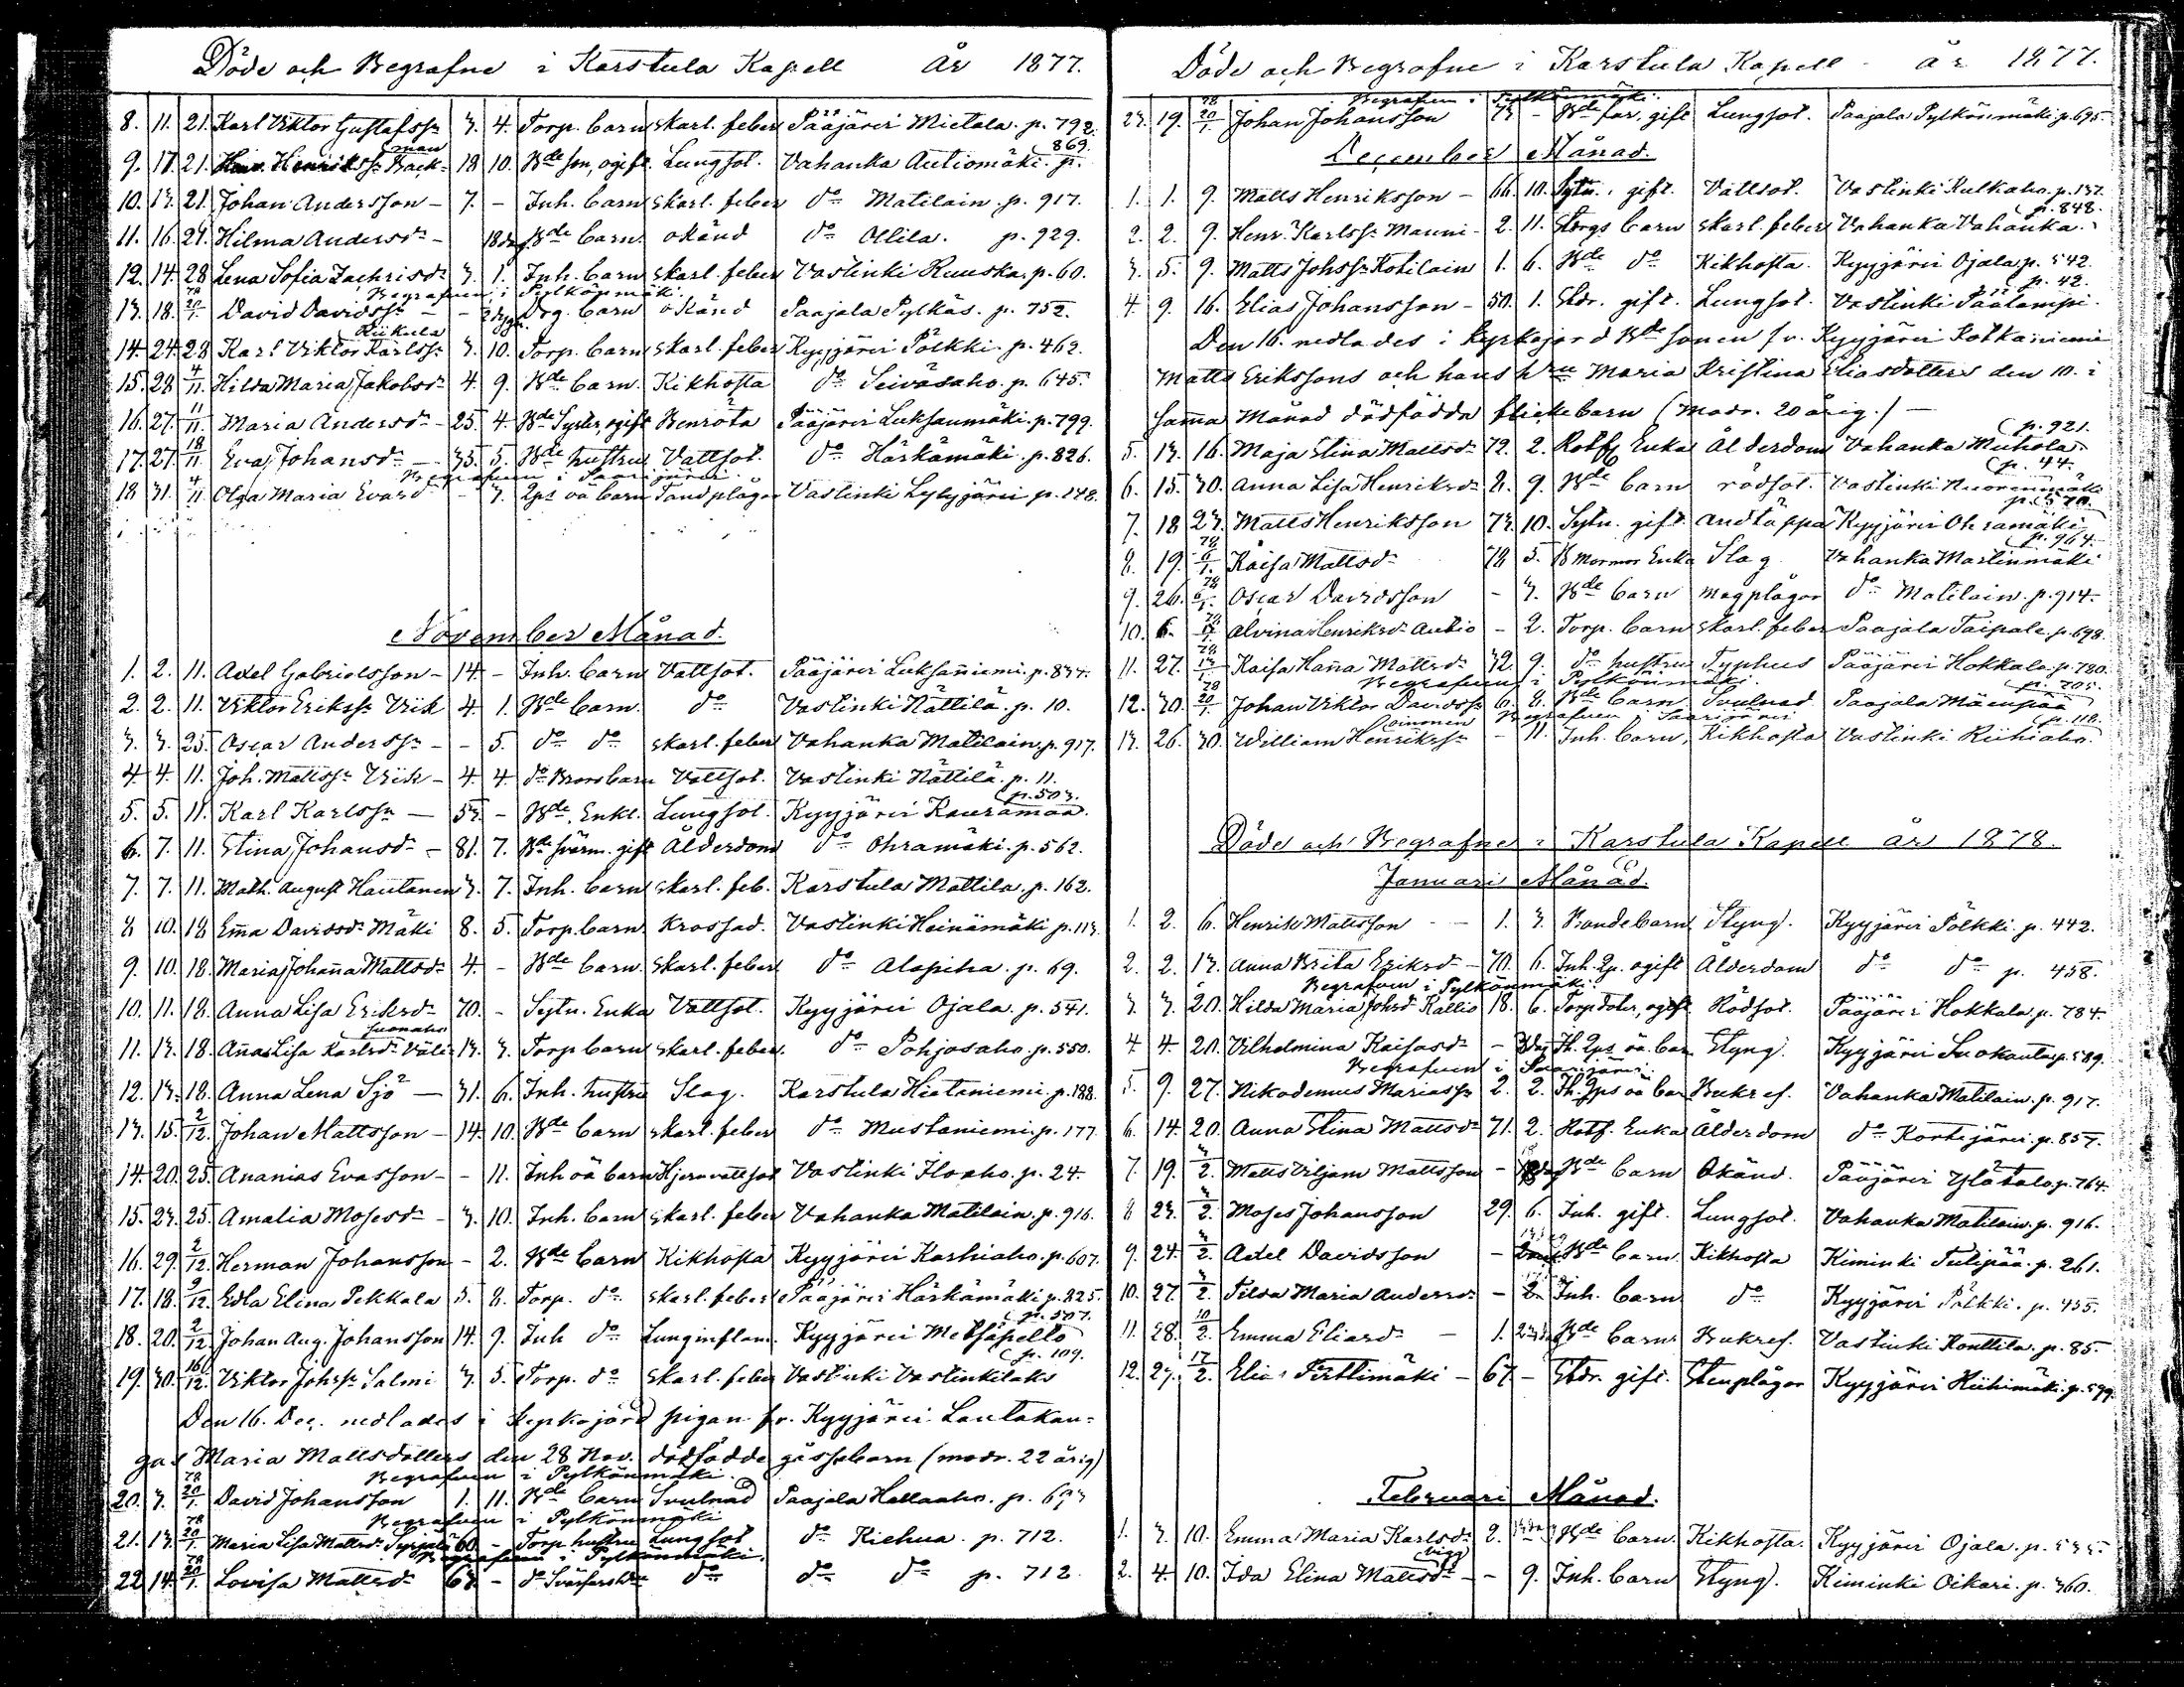 Döde och Begrafne i Karstula Kapell År 1877.
8. 11. 21. Karl Viktor Gustafss. 3. 4. Torp. barn skarl. feber Pääjärvi Mietala. p. 792.
man 869.
9. 17. 21. Henrikss. Back- 18 10. Bde son, ogift. Lungsot. Vahanka Autiomäki. p.
10. 13. 21. Johan Andersson - 7. - Inh. barn skarl. feber do Matilain. p. 917.
11. 16. 21. Hilma Andersdr - Bde barn okänd do Ollila. p. 929.
12. 14. 28 Lena Sofia Zachrisdr 3. 1. Inh. barn skarl. feber Vastinki Ruuska. p. 60.
Begrafven i Pylkönmäki.
13. 18. 20/1. David Davidss. - barn okänd Paajala Pylkäs. p. 752.
14. 24. 28 Karl Viktor Karlss. 3. 10. Torp. barn skarl. feber Kyyjärvi Pölkki. p. 462.
15. 28 4/11. Hilda Maria Jakobsdr 4. 9. Bde barn. Kikhosta do Seiväsaho. p. 645.
16. 27. 11/11. Maria Andersdr - 25. 4. Bde Syster, ogift Benröta Pääjärvi Luksanmäki. p. 799.
17. 27. 18/11 Eva Johansdr - 35. 5. Bde hustru Vattsot. do Härkämäki. p. 826.
Begrafven i Saarijärvi
18 31. 4/11 Olga Maria Evasdr - 3. 2ps oä barn Tandplågor Vastinki Lylyjärvi p. 148.
November Månad.
1. 2. 11. Axel Gabrielsson - 14. - Inh. barn Vattsot. Pääjärvi Luksanniemi. p. 834.
2. 2. 11. Viktor Erikss. Vrik 4. 1. Bde barn. do Vastinki Hättilä. p. 10.
3. 3. 25. Oscar Anderss. - - 5. do do skarl. feber Vahanka Matilain. p. 917.
4. 4. 11. Joh. Mattss. Vrik - 4. 4. do Brors barn Vattsot. Vastinki Hättilä. p. 11.
p. 503.
5. 5. 11. Karl Karlss. - 53. - Bde, Enkl. Lungsot. Kyyjärvi Kauramaa.
6. 7. 11. Stina Johansdr - 81. 7. Bde svärm. gift Ålderdom do Ohramäki. p. 562.
7. 7. 11. Math. August Hautanen 3. 7. Inh. barn skarl. feb. Karstula Mattila. p. 162.
8 10. 18 Emma Davidsdr Mäki 8. 5. Torp. barn Krossad. Vastinki Heinämäki p. 113.
9. 10. 18. Maria Johanna Mattsdr 4. - Bde barn. skarl. feber do Alapiha. p. 69.
10. 11. 18. Anna Lisa Eriksdr 70. - Sytn. Enka Vattsot. Kyyjärvi Ojala. p. 541.
11. 13. 18. Anna Lisa Karlsdr 13. 3. Torp barn skarl. feber. do Pohjosaho. p. 550.
12. 13. 18. Anna Lena Sjö - 31. 6. Inh. hustru Slag. Karstula Hietaniemi. p. 188.
13. 15. 2/12. Johan Mattsson - 14. 10. Bde barn skarl. feber do Mustaniemi. p. 177.
14. 20. 25. Ananias Evasson - - 11. Inh oä barn Hjernvattsot Vastinki Iloaho. p. 24.
15. 23. 25. Amalia Mosesdr - 3. 10. Inh. barn skarl. feber Vahanka Matilain. p. 916.
16. 29. 2/12. Herman Johansson - 2. Bde barn Kikhosta Kyyjärvi Karhiaho. p. 607.
17. 18. 9/12 Edla Elina Pekkala 5. 8. Torp. do skarl. feber Pääjärvi Härkämäki p. 825.
p. 507.
18. 20. 2/12 Johan Aug. Johansson 14. 9. Inh do Lunginflam. Kyyjärvi Metsäpelto
p. 109.
19. 30. 16/12. Viktor Johss. Salmi 3. 5. Torp. do skarl. feber Vastinki Vastinkitalo
Den 16. Dec. nedlades i kyrkojord pigan fr. Kyyjärvi Lautakan-
gas Maria Mattsdotters den 28 Nov. dödfödde gossebarn (modr. 22 årig)
Begrafven i Pylkönmäki.
20. 3. 20/1. David Johansson 1. 11. Bde barn Svulnad Paajala Hallaaho. p. 693
Begrafven i Pylkönmäki
21. 13. 20/1. Maria Lisa Mattsdr 60 - Torp hustru Lungsot do Kiehua. p. 712.
Begrafven i Pylkönmäki.
22 14. 20/1. Lovisa Mattsdr 63 - do do do p. 712.
Döde och Begrafne i Karstula Kapell år 1877.
Begrafven i Pylkönmäki.
23. 19. 78 20/1. Johan Johansson 73 - Bde far, gift Lungsot. Paajala Pylkönmäki p. 695.
December Månad.
1. 1. 9. Matts Henriksson - 66. 10. Sytn. gift. Vattsot. Vastinki Kulkaho. p. 137.
p. 848.
2. 2. 9. Henr. Karlss. Manni - 2. 11. barn skarl. feber Vahanka Vahanka.
3. 5. 9. Matts Johss. Kotilain 1. 6. Bde do Kikhosta. Kyyjärvi Ojala p. 542.
p. 42.
4. 9. 16. Elias Johansson - 50. 1. gift. Lungsot. Vastinki Päälampi.
Den 16. nedlades i kyrkojord Bde sonen fr. Kyyjärvi Kotkaniemi
Matts Erikssons och hans hru Maria Kristina Eliasdotters den 10. i
samma Månad dödfödda flickebarn (modr. 20 årig.) -
p. 921.
5. 13. 16. Maja Stina Mattsdr 72. 2. Rotfg Enka Ålderdom Vahanka Muhola
p. 44.
6. 15. 30. Anna Lisa Henriksdr 8. 9. Bde barn rödsot. Vastinki
p. 570.
7. 18 23. Matts Henriksson 73. 10. Sytn. gift. andtäppa Kyyjärvi Ohramäki
p. 964.
8. 19. 78 6/1. Kaisa Mattsdr 78 5. B Mormor Enka Slag Vahanka Martinmäki
9. 26. 78 6/1. Oscar Davidsson - 3. Bde barn magplågor do Matilain. p. 914.
10. 6. Alvina Henriksdr Autio - 2. Torp. barn skarl. feber Paajala Taipale. p. 698.
11. 27. 78 13/1 Kaisa Hanna Mattsdr 32 9. do hustru Typhus Pääjärvi Hokkala. p. 780.
Begrafven i Pylkönmäki.
p. 705.
12. 30. 78 20/1. Johan Viktor Davidss. 6. 8. Bde barn Svulnad Paajala Mäenpää
Begrafven i Saarijärvi
p. 118.
13. 26. 30. William Henrikss. - 11. Inh. barn, Kikhosta Vastinki Riihiaho.
Döde och Begrafne i Karstula Kapell år 1878.
Januari Månad.
1. 2. 6. Henrik Mattsson - 1. 3. Bonde barn Styng. Kyyjärvi Pölkki. p. 442.
2. 2. 13. Anna Brita Eriksdr - 70. 6. Inh. 2p. ogift Ålderdom do do p. 458.
Begrafven i Pylkönmäki.
3. 3. 20. Hilda Maria Johsdr Kallio 18. 6. Torp doter, ogift Rödsot. Pääjärvi Hokkala. p. 784.
4. 4. 20. Vilhelmina Kaisasdr - Ih. 2ps oä bar Styng. Kyyjärvi Suokanta p. 589.
Begrafven i Saarijärvi.
5. 9. 27. Nikodemus Mariass. 2. 2. Ih. 2ps oä bar Bukref. Vahanka Matilain. p. 917.
6. 14. 20. Anna Stina Mattsdr 71. 2. Rotf. Enka Ålderdom do Kortejärvi. p. 857.
7. 19. 3/2. Matts Viljam Mattsson - Bde barn Okänd. Pääjärvi Ylätalo p. 764.
8 23. 3/2. Moses Johansson 29. 6. Inh. gift. Lungsot. Vahanka Matilain. p. 916.
9. 24. 3/2. Axel Davidsson - Bde barn Kikhosta Kiminki Tulipää. p. 261.
10. 27. 3/2. Tilda Maria Andersdr - 2. Inh. barn do Kyyjärvi Pölkki. p. 455.
11. 28. 10/2. Emma Eliasdr - 1. Bde barn. Bukref. Vastinki Konttila. p. 85.
12. 27. 17/2. Elias Perttimäki - 67. - gift. Stenplågor Kyyjärvi Hiihimäki. p. 599.
Februari Månad.
1. 3. 10. Emma Maria Karlsdr 2. Bde barn. Kikhosta. Kyyjärvi Ojala. p. 535.
2. 4. 10. Ida Elina Mattsdr - - 9. Inh. barn Styng. Kiminki Oikari. p. 360.